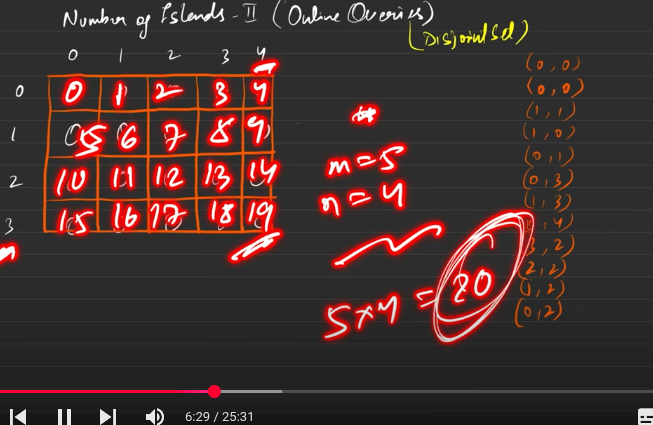 Number of Islands - II (Online Queries)
(Disjoint Set)
0 1 2 3 4
0 0 1 2 3 4
1 5 6 7 8 9
2 10 11 12 13 14
3 15 16 17 18 19
m = 5
n = 4
5 × 4 = 20
(0, 0)
(0, 0)
(1, 1)
(1, 0)
(0, 1)
(0, 3)
(1, 3)
, 4)
3, 2)
2, 2)
(1, 2)
(0, 2)
6:29 / 25:31